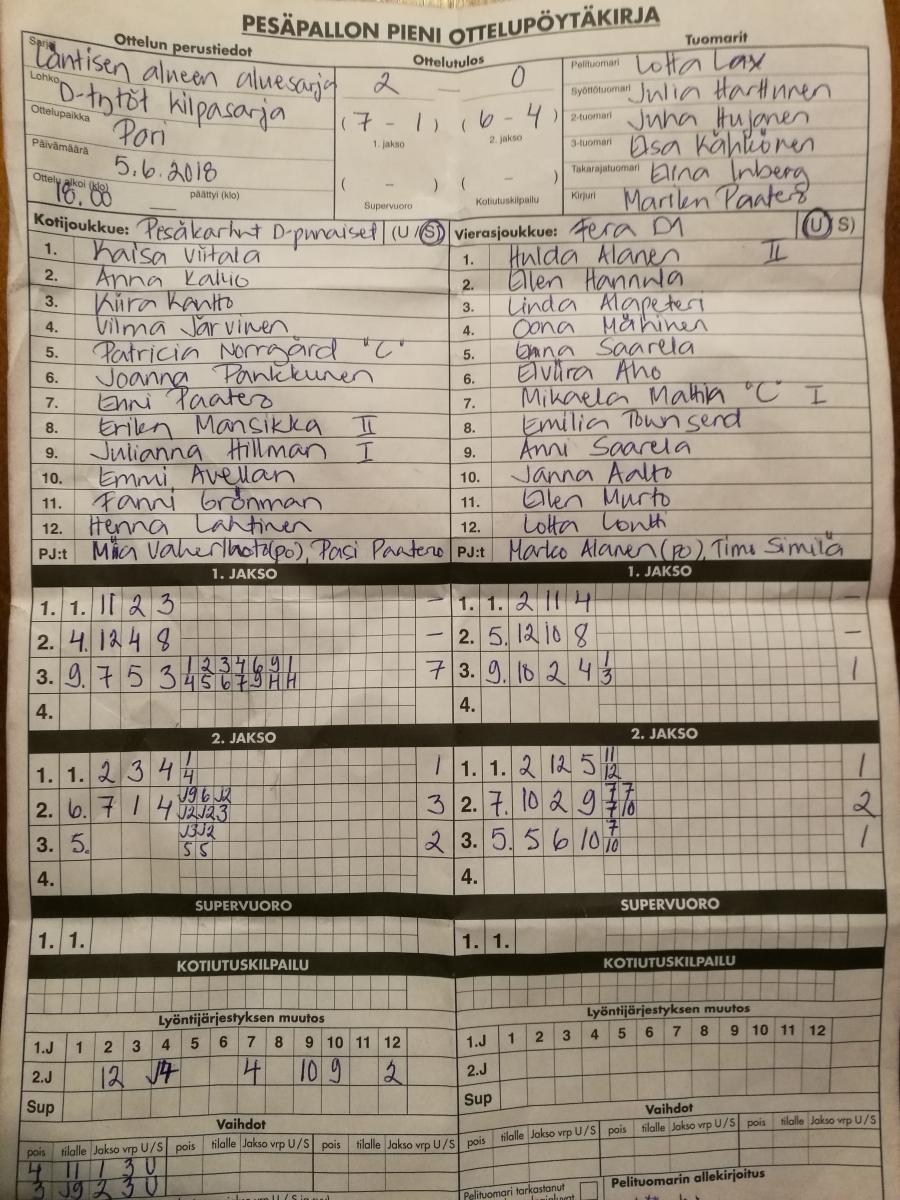 PESÄPALLON PIENI OTTELUPÖYTÄKIRJA
Ottelun perustiedot Ottelutulos Tuomarit
Sarja Läntisen alueen aluesarja
Lohko D-tytöt kilpasarja
Ottelupaikka Pori
Päivämäärä 5.6.2018
Ottelu alkoi (klo) 18.00 päättyi (klo)
2 — 0
(7 - 1) (6 - 4)
1. jakso 2. jakso
( - ) ( - )
Supervuoro Kotiutuskilpailu
Pelituomari Lotta Lax
Syöttötuomari Julia Harttunen
2-tuomari Juha Hujanen
3-tuomari Esa Kähkönen
Takarajatuomari Elina Inberg
Kirjuri Marilen Paatero
Kotijoukkue: Pesäkarhut D-punaiset (U / S)
1. Kaisa Viitala
2. Anna Kallio
3. Kiira Kantto
4. Vilma Järvinen
5. Patricia Norrgård "C"
6. Joanna Pankkunen
7. Enni Paatero
8. Erilen Mansikka II
9. Julianna Hillman I
10. Emmi Avellan
11. Fanni Grönman
12. Henna Lahtinen
PJ:t Miia (po), Pasi Paatero
Vierasjoukkue: Fera D1 (U S)
1. Hulda Alanen II
2. Ellen Hannula
3. Linda Alapeteri
4. Oona Mäkinen
5. Emma Saarela
6. Elviira Aho
7. Mikaela "C" I
8. Emilia Townsend
9. Anni Saarela
10. Janna Aalto
11. Ellen Murto
12. Lotta Lontti
PJ:t Marko Alanen (po), Timo Similä
1. JAKSO
1. 1. 11 2 3 –
2. 4. 12 4 8 –
3. 9. 7 5 3 1 2 3 4 6 9 1 7
4 5 6 7 9 11 11
4.
1. JAKSO
1. 1. 2 11 4 –
2. 5. 12 10 8 –
3. 9. 10 2 4 1 1
3
4.
2. JAKSO
1. 1. 2 3 4 1 1
4
2. 6. 7 1 4 J9 6 J2 3
J2 J2 3
3. 5. J3 J2 2
5 5
4.
2. JAKSO
1. 1. 2 12 5 11 1
12
2. 7. 10 2 9 7 7 2
7 10
3. 5. 5 6 10 7 1
10
4.
SUPERVUORO
1. 1.
SUPERVUORO
1. 1.
KOTIUTUSKILPAILU
KOTIUTUSKILPAILU
Lyöntijärjestyksen muutos
1.J 1 2 3 4 5 6 7 8 9 10 11 12
2.J 12 J4 4 10 9 2
Sup
Lyöntijärjestyksen muutos
1.J 1 2 3 4 5 6 7 8 9 10 11 12
2.J
Sup
Vaihdot
pois tilalle Jakso vrp U / S pois tilalle Jakso vrp U / S pois tilalle Jakso vrp U / S
4 11 1 3 U
3 J9 2 3 U
Vaihdot
pois tilalle Jakso vrp U / S pois tilalle Jakso vrp U / S pois tilalle Jakso vrp U / S
Pelituomari tarkastanut
Pelituomarin allekirjoitus